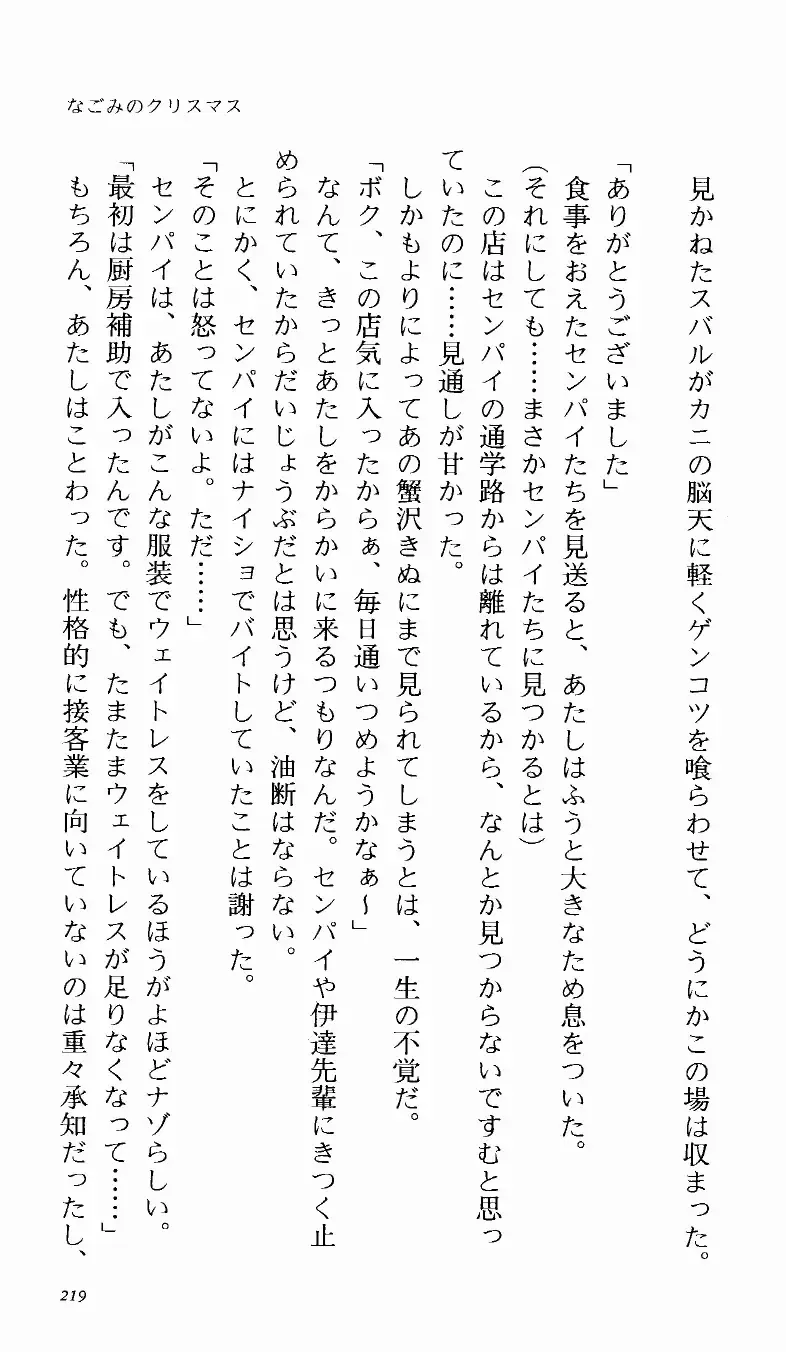 なごみのクリスマス
見かねたスバルがカニの脳天に軽くゲンコツを喰らわせて、どうにかこの場は収まった。
「ありがとうございました」
食事をおえたセンパイたちを見送ると、あたしはふうと大きなため息をついた。
(それにしても……まさかセンパイたちに見つかるとは)
この店はセンパイの通学路からは離れているから、なんとか見つからないですむと思っ
ていたのに……見通しが甘かった。
しかもよりによってあの蟹沢きぬにまで見られてしまうとは、一生の不覚だ。
「ボク、この店気に入ったからぁ、毎日通いつめようかなぁ～」
なんて、きっとあたしをからかいに来るつもりなんだ。センパイや伊達先輩にきつく止
められていたからだいじょうぶだとは思うけど、油断はならない。
とにかく、センパイにはナイショでバイトしていたことは謝った。
「そのことは怒ってないよ。ただ……」
センパイは、あたしがこんな服装でウェイトレスをしているほうがよほどナゾらしい。
「最初は厨房補助で入ったんです。でも、たまたまウェイトレスが足りなくなって……」
もちろん、あたしはことわった。性格的に接客業に向いていないのは重々承知だったし、
219